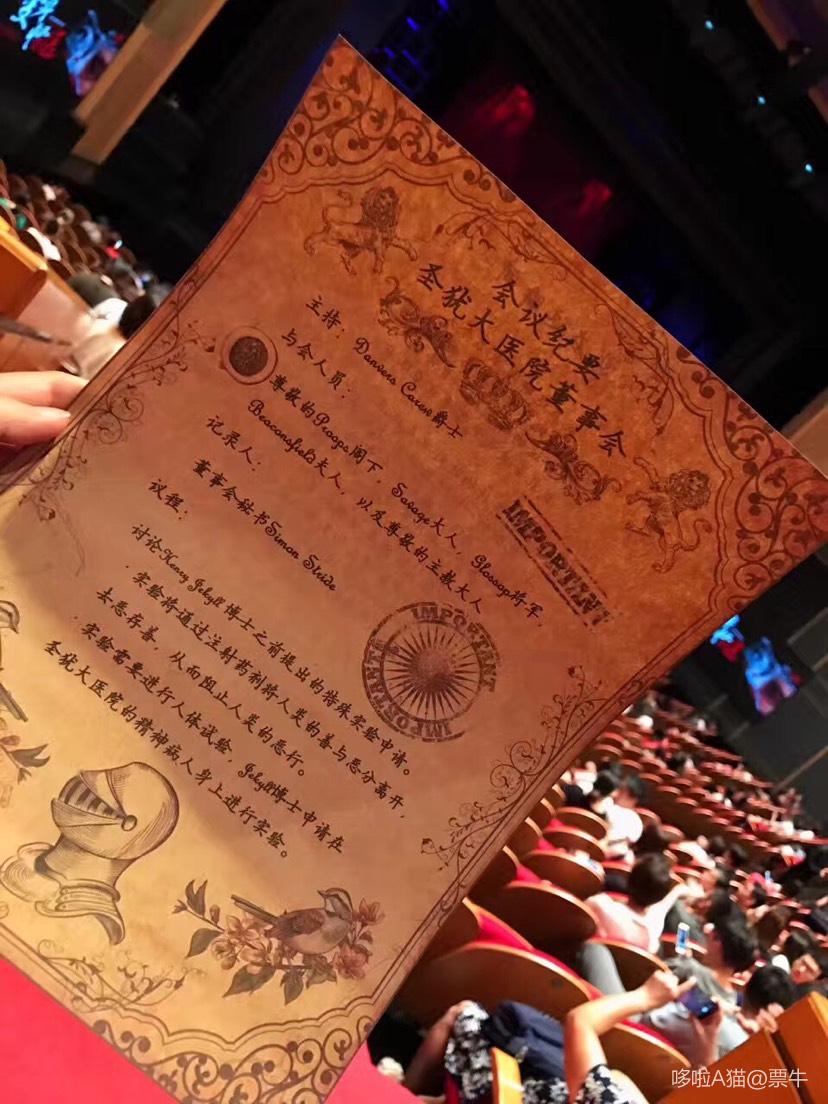 会议纪要
圣犹大医院董事会
主持：Danvers Carew爵士
与会人员：
尊敬的Proops阁下，Savage大人，Glossop将军，
Beaconsfield夫人，以及尊敬的主教大人
记录人：
董事会秘书Simon Stride
议程：
讨论Henry Jekyll博士之前提出的特殊实验申请。
·实验将通过注射药剂将人类的善与恶分离开，
去恶存善，从而阻止人类的恶行。
·实验需要进行人体试验，Jekyll博士申请在
圣犹大医院的精神病人身上进行实验。
IMPORTENT
IMPORTENT
IMPORTENT
IMPORTENT
哆啦A猫@票牛